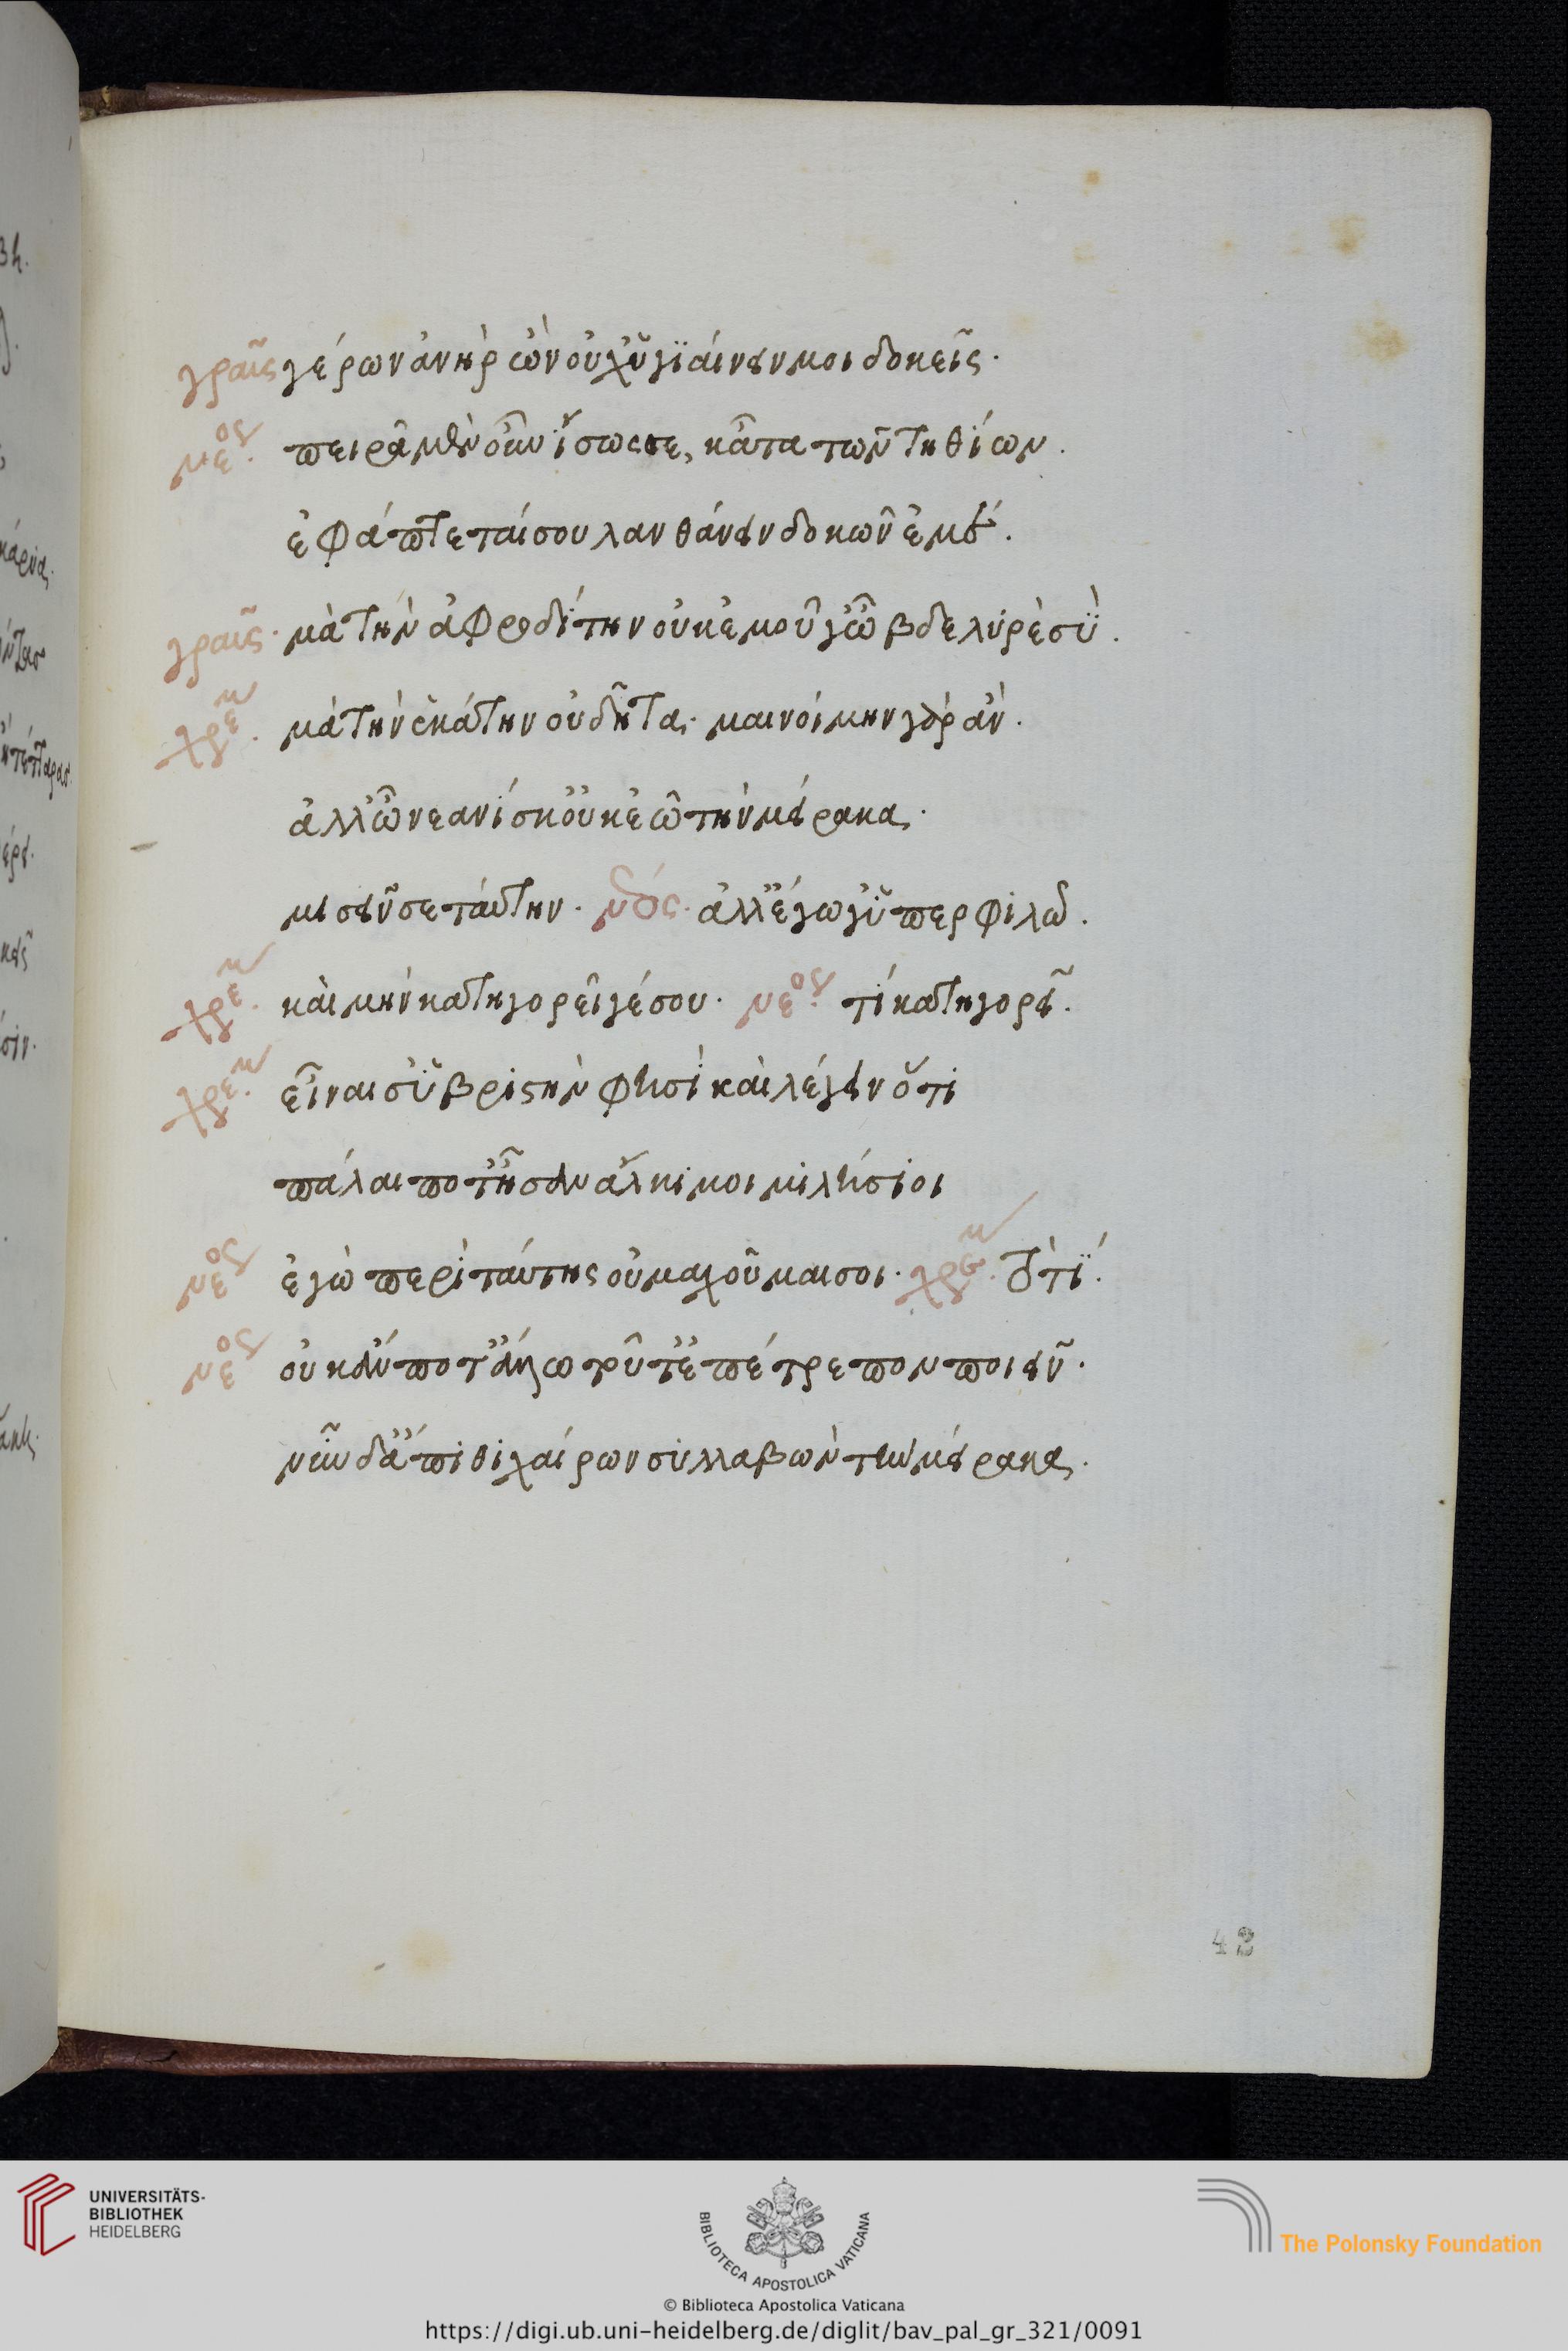 γραῦς γέρων ἀνὴρ ὢν οὐχ ὑγιαίνειν μοι δοκεῖς.
νεος πειρᾷ μὲν οὖν ἴσως σε, κᾆτα τῶν τιτθίων.
ἐφάπτεταί σου λανθάνειν δοκῶν ἐμέ.
γραῦς. μὰ τὴν ἀφροδίτην οὐκ ἐμοῦ γ' ὦ βδελυρὲ σύ.
χρεμ. μὰ τὴν ἑκάτην οὐ δῆτα. μαινοίμην γὰρ ἄν.
ἀλλ' ὦ νεανίσκ' οὐκ ἐῶ τὴν μείρακα.
μισεῖν σε ταύτην. νεος. ἀλλ' ἔγωγ' ὑπερφιλῶ.
χρεμ. καὶ μὴν κατηγορεῖ γέ σου. νεος. τί κατηγορεῖ.
χρεμ. εἶναί σ' ὑβριστὴν φησὶ καὶ λέγειν ὅτι
πάλαι ποτ' ἦσαν ἄλκιμοι μιλήσιοι
νεος ἐγὼ περὶ ταύτης οὐ μαχοῦμαι σοι. χρεμ. τὸ τί.
νεος οὐκ ἄν ποτ' ἄλλω τοῦτ' ἐπέτρεπον ποιεῖν.
νῦν δ' ἄπιθι χαίρων συλλαβὼν τὴν μείρακα.
42
UNIVERSITÄTS-
BIBLIOTHEK
HEIDELBERG
BIBLIOTECA APOSTOLICA VATICANA
The Polonsky Foundation
© Biblioteca Apostolica Vaticana
https://digi.ub.uni-heidelberg.de/diglit/bav_pal_gr_321/0091